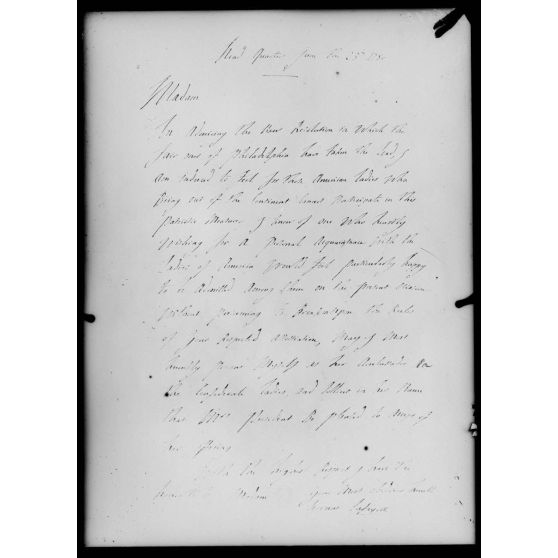 Head Quarters June the 25th 1780
Madam
In admiring the New Resolution in which the
fair ones of Philadelphia have taken the lead, I
am induced to feel for those American ladies who
Being out of the Continent Cannot participate in this
patriotic Measure I know of one who heartily
wishing for a personal acquaintance with the
ladies of America Would feel particularly happy
to be admitted among them on the present occasion
Without presuming to Break upon the Rules
of your Respected association, May I Most
humbly present Myself as her Ambassador to
the Confederate ladies, and sollicit in her Name
that Mrs. president Be pleased to accept of
her offering
With the highest Respect I have the
honor to be Madam Your Most obedient humble
Servant Lafayette